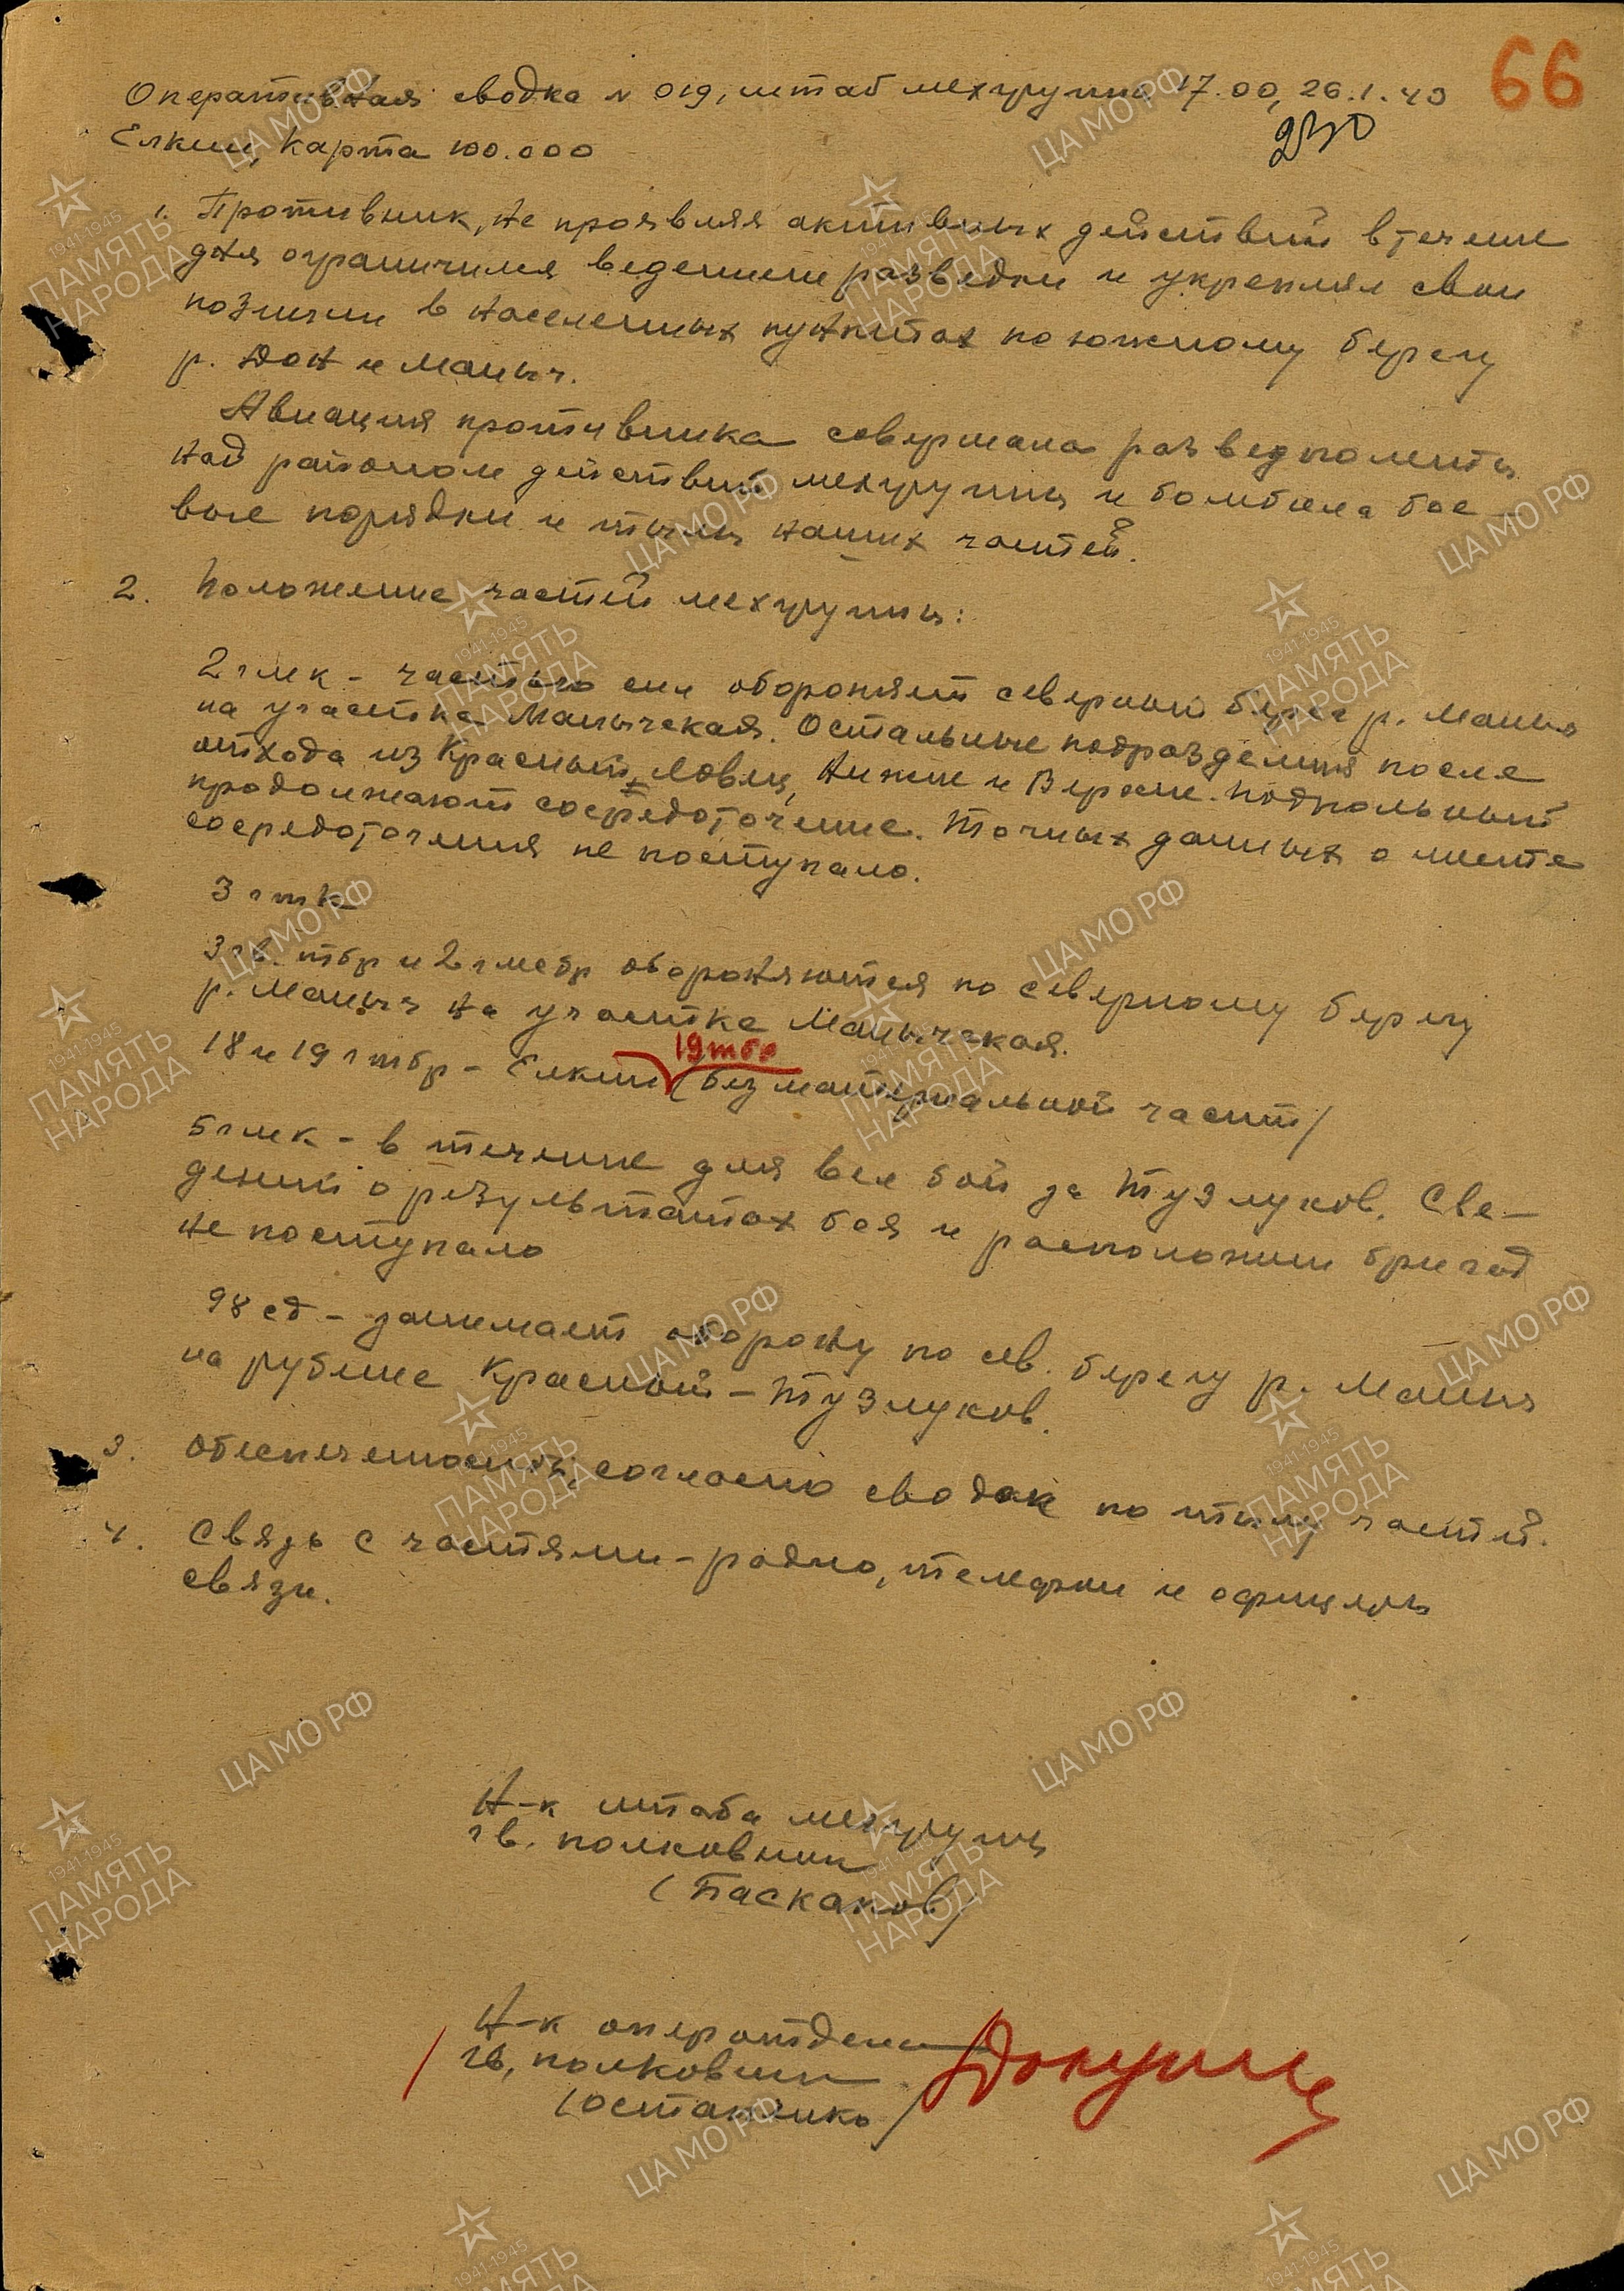 66
Оперативная сводка № 019, штаб мехгруппы 17.00, 26.1.43
230
Елкин, Карта 100.000
1. Противник, не проявляя активных действий в течение
дня ограничился ведением разведки и укреплял свои
позиции в населенных пунктах по южному берегу
р. Дон и Маныч.
Авиация противника совершала разведполеты
над районом действий мехгруппы и бомбила бое-
вые порядки и тылы наших частей.
2. Положение частей мехгруппы:
2 гмк - частью сил обороняет северный берег р. Маныч
на участке Манычская. Остальные подразделения после
отхода из Красный Ловец, Нижне и Верхне-Подпольный
продолжают сосредоточение. Точных данных о месте
сосредоточения не поступало.
3 гтк
3 гв. тбр и 2 гмсбр обороняются по северному берегу
р. Маныч на участке Манычская.
19 тбр
18 и 19 гтбр - Елкин (без материальной части/
5 гмк - в течение дня вел бой за Тузлуков. Све-
дений о результатах боя и расположении бригад
не поступало
98 сд - занимает оборону по сев. берегу р. Маныч
на рубеже Красный - Тузлуков.
3. Обеспеченность, согласно сводок по тылу частей.
4. Связь с частями - радио, телефон и офицеры
связи.
Н-к штаба мехгруппы
гв. полковник
(Баскаков/
Н-к оперотдела
гв. полковник
(Остапенко/